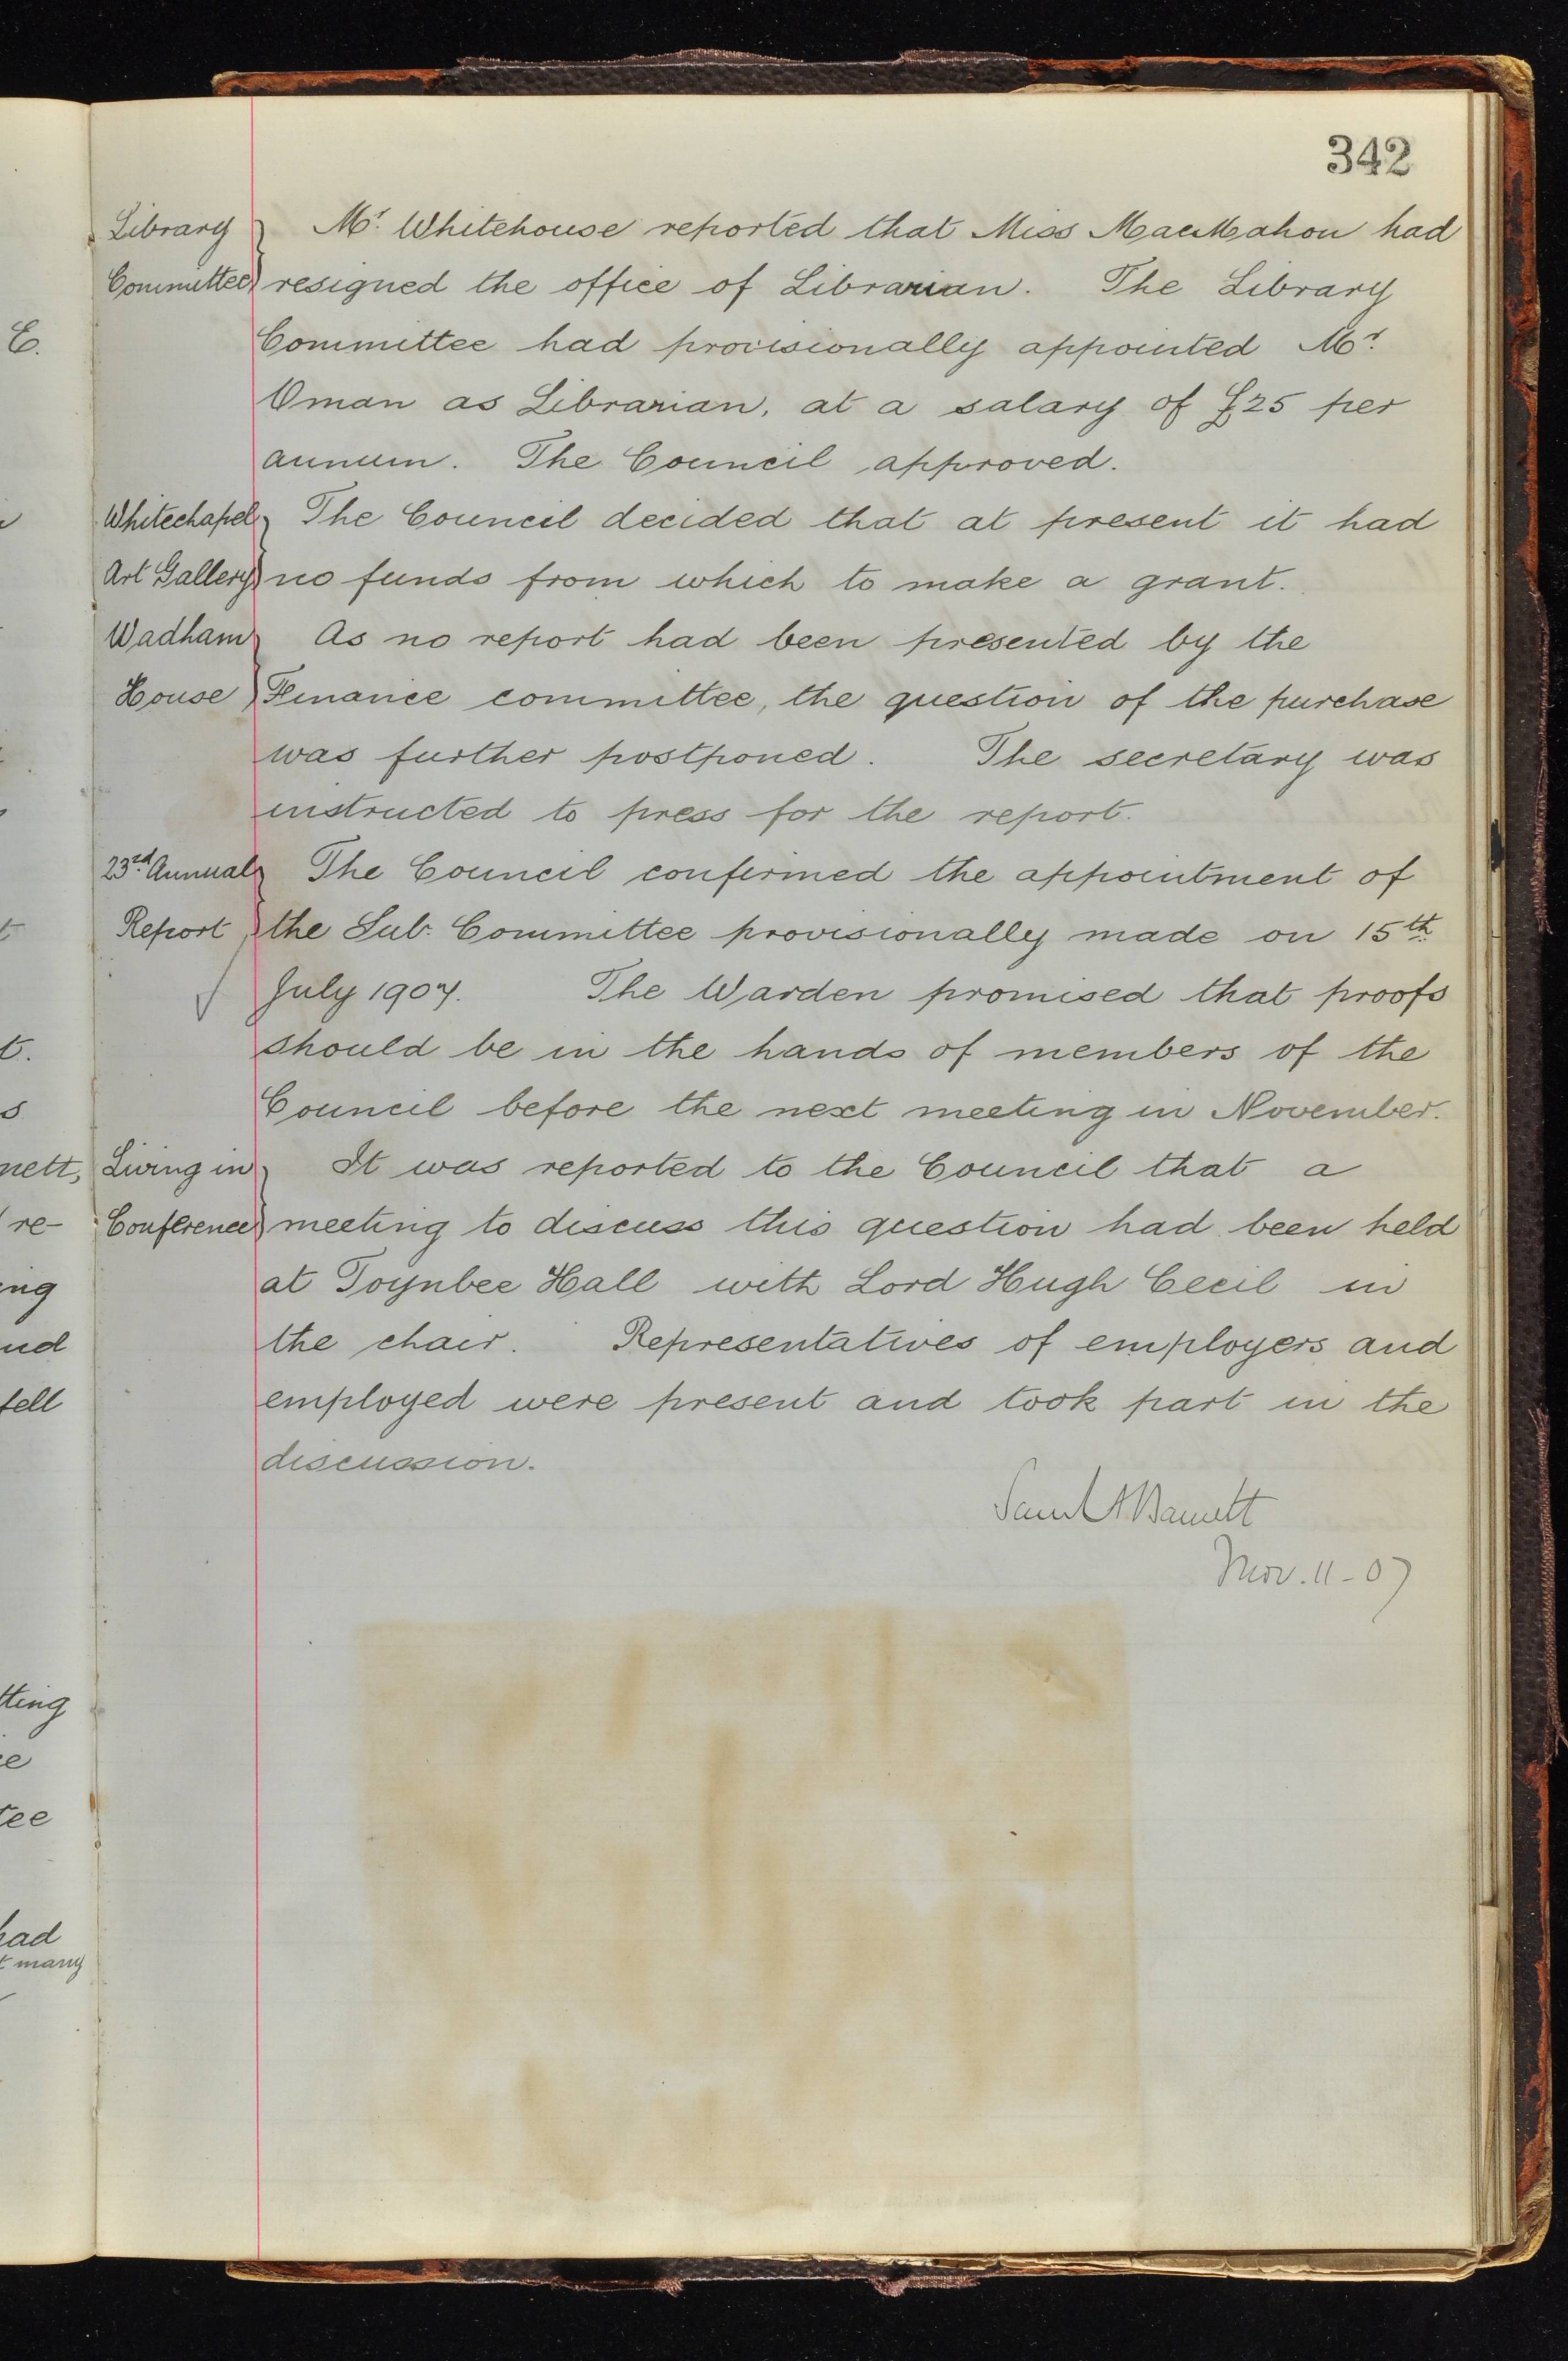 342
Library } Mr. Whitehouse reported that Miss MacMahon had
Committee } resigned the office of Librarian. The Library
Committee had provisionally appointed Mr.
Oman as Librarian, at a salary of £25 per
annum. The Council approved.
Whitechapel } The Council decided that at present it had
Art Gallery } no funds from which to make a grant.
Wadham } As no report had been presented by the
House } Finance committee, the question of the purchase
was further postponed. The secretary was
instructed to press for the report.
23rd Annual } The Council confirmed the appointment of
Report } the Sub. Committee provisionally made on 15th
July 1907. The Warden promised that proofs
should be in the hands of members of the
Council before the next meeting in November.
Living in } It was reported to the Council that a
Conference } meeting to discuss this question had been held
at Toynbee Hall with Lord Hugh Cecil in
the chair. Representatives of employers and
employed were present and took part in the
discussion.
Saml A Barnett
Nov. 11-07
E.
t.
s
nett,
re-
ing
nd
fell
tting
ee
tee
had
t many